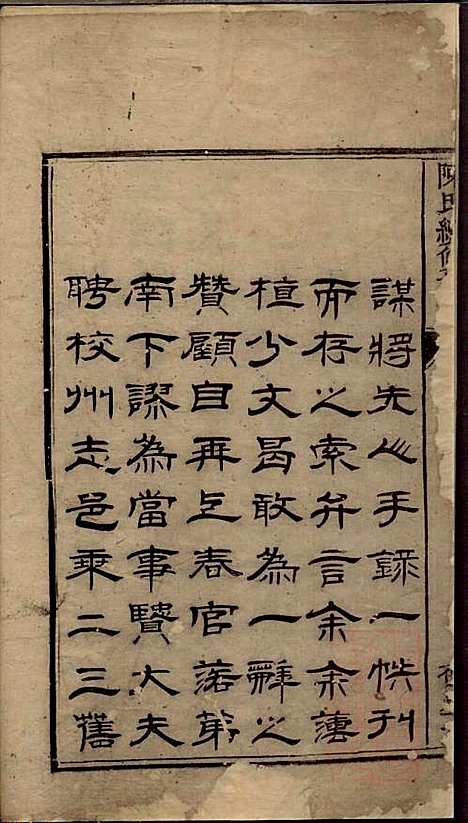 謀將先人手錄一帙刊
而存之索弁言余余謭
植少文曷敢為一辭之
贊顧自再上春官落第
南下謬為當事賢大夫
聘校州志邑乘二三舊